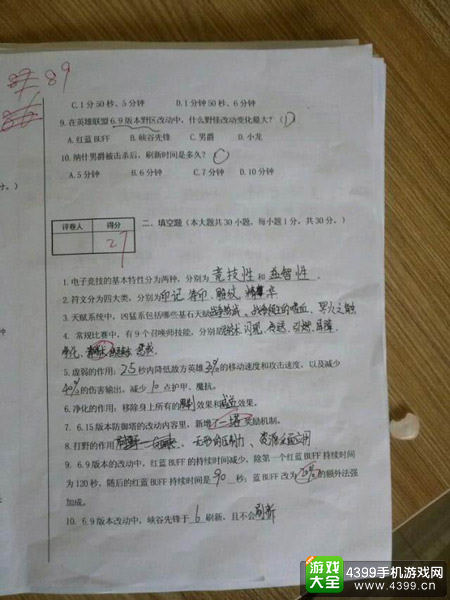 89
C.1分50秒、5分钟 D.1分钟50秒、6分钟
9.在英雄联盟6.9版本野区改动中，什么野怪改动变化最大？（ ）
A.红蓝BUFF B.峡谷先锋 C.男爵 D.小龙
10.纳什男爵被击杀后，刷新时间是多久？（
A.5分钟 B.6分钟 C.7分钟 D.10分钟
分。）
评卷人 得分
27
二、填空题（本大题共30小题，每小题1分，共30分。）
1.电子竞技的基本特性分为两种，分别为 竞技性 和 益智性 .
2.符文分为四大类，分别为印记
3.天赋系统中，凶猛系包括哪些基石天赋
4.常规比赛中，有9个召唤师技能，分别是 闪现、 引燃、
净化、
5.虚弱的作用：2.5秒内降低敌方英雄 的移动速度和攻击速度，以及减少
40%的伤害输出，减少 10 点护甲、魔抗。
6.净化的作用，移除身上所有的 效果和 效果。
7.6.15版本防御塔的改动内容里，新增了一塔奖励机制。
8.打野的作用 无形的压制力、
9.6.9版本的改动中，红蓝BUFF的持续时间减少，除第一个红蓝BUFF持续时间
为120秒，随后的红蓝BUFF持续时间是 90 秒；蓝BUFF改为 的额外法强
加成。
10.6.9版本改动中，峡谷先锋于 6 刷新，且不会刷新
分，
游戏大全
4399手机游戏网
www.4399.cn